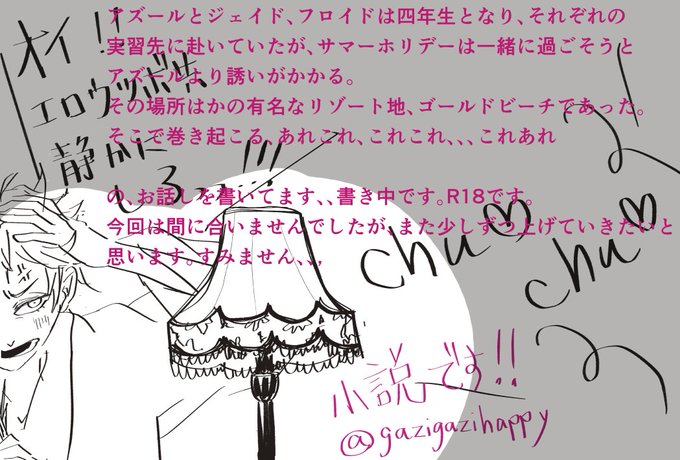 アズールとジェイド、フロイドは四年生となり、それぞれの
実習先に赴いていたが、サマーホリデーは一緒に過ごそうと
アズールより誘いがかかる。
その場所はかの有名なリゾート地、ゴールドビーチであった。
そこで巻き起こる、あれこれ、これこれ、、、これあれ
の、お話しを書いてます、、書き中です。R18です。
今回は間に合いませんでしたが、また少しずつ上げていきたいと
思います。すみません、、,
オイ!!
エロウツボ共
静かに
しろ…!!!
chu♡
chu♡
小説です!!
@gazigazihappy